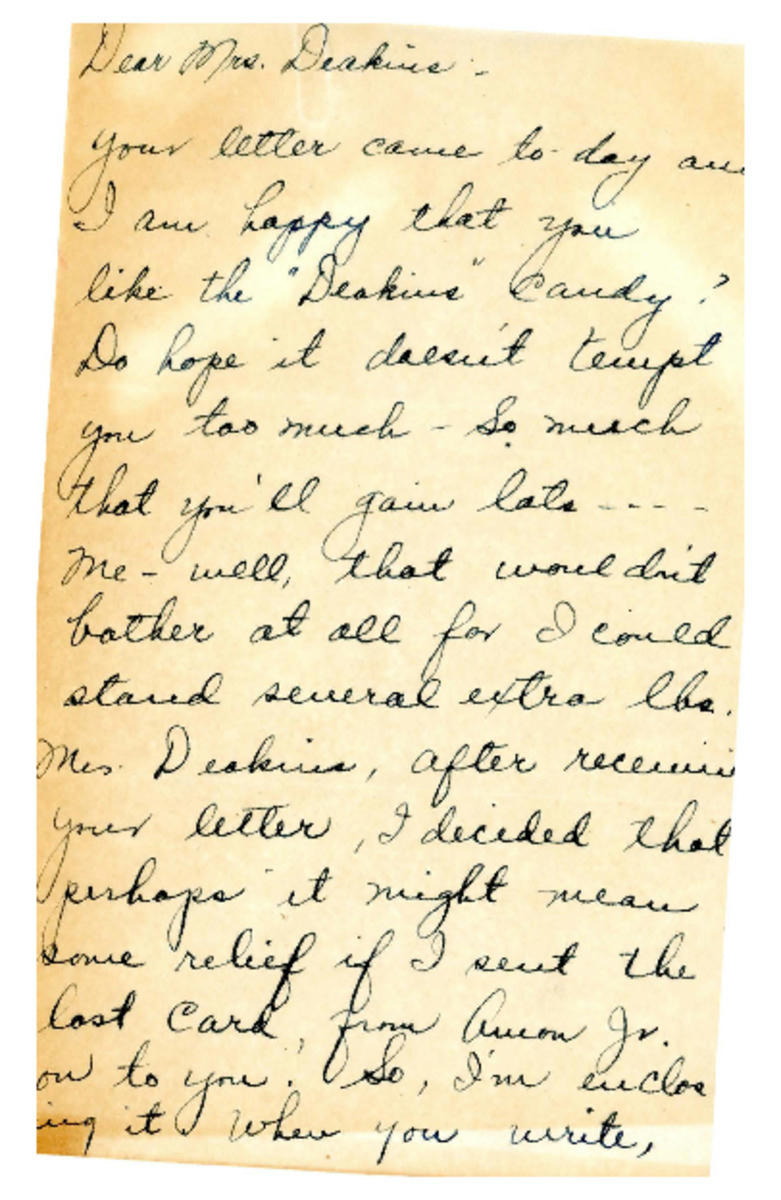 Dear Mrs. Deakins -
Your letter came to-day an
I am happy that you
like the "Deakins" Candy?
Do hope it doesn't tempt
you too much - So much
that you'll gain lots ----
Me - well, that wouldn't
bother at all for I could
stand several extra lbs.
Mrs. Deakins, after receivin
your letter, I decided that
perhaps it might mean
some relief if I sent the
last Card, from Amon Jr.
on to you! So, I'm enclos
ing it. When you write,